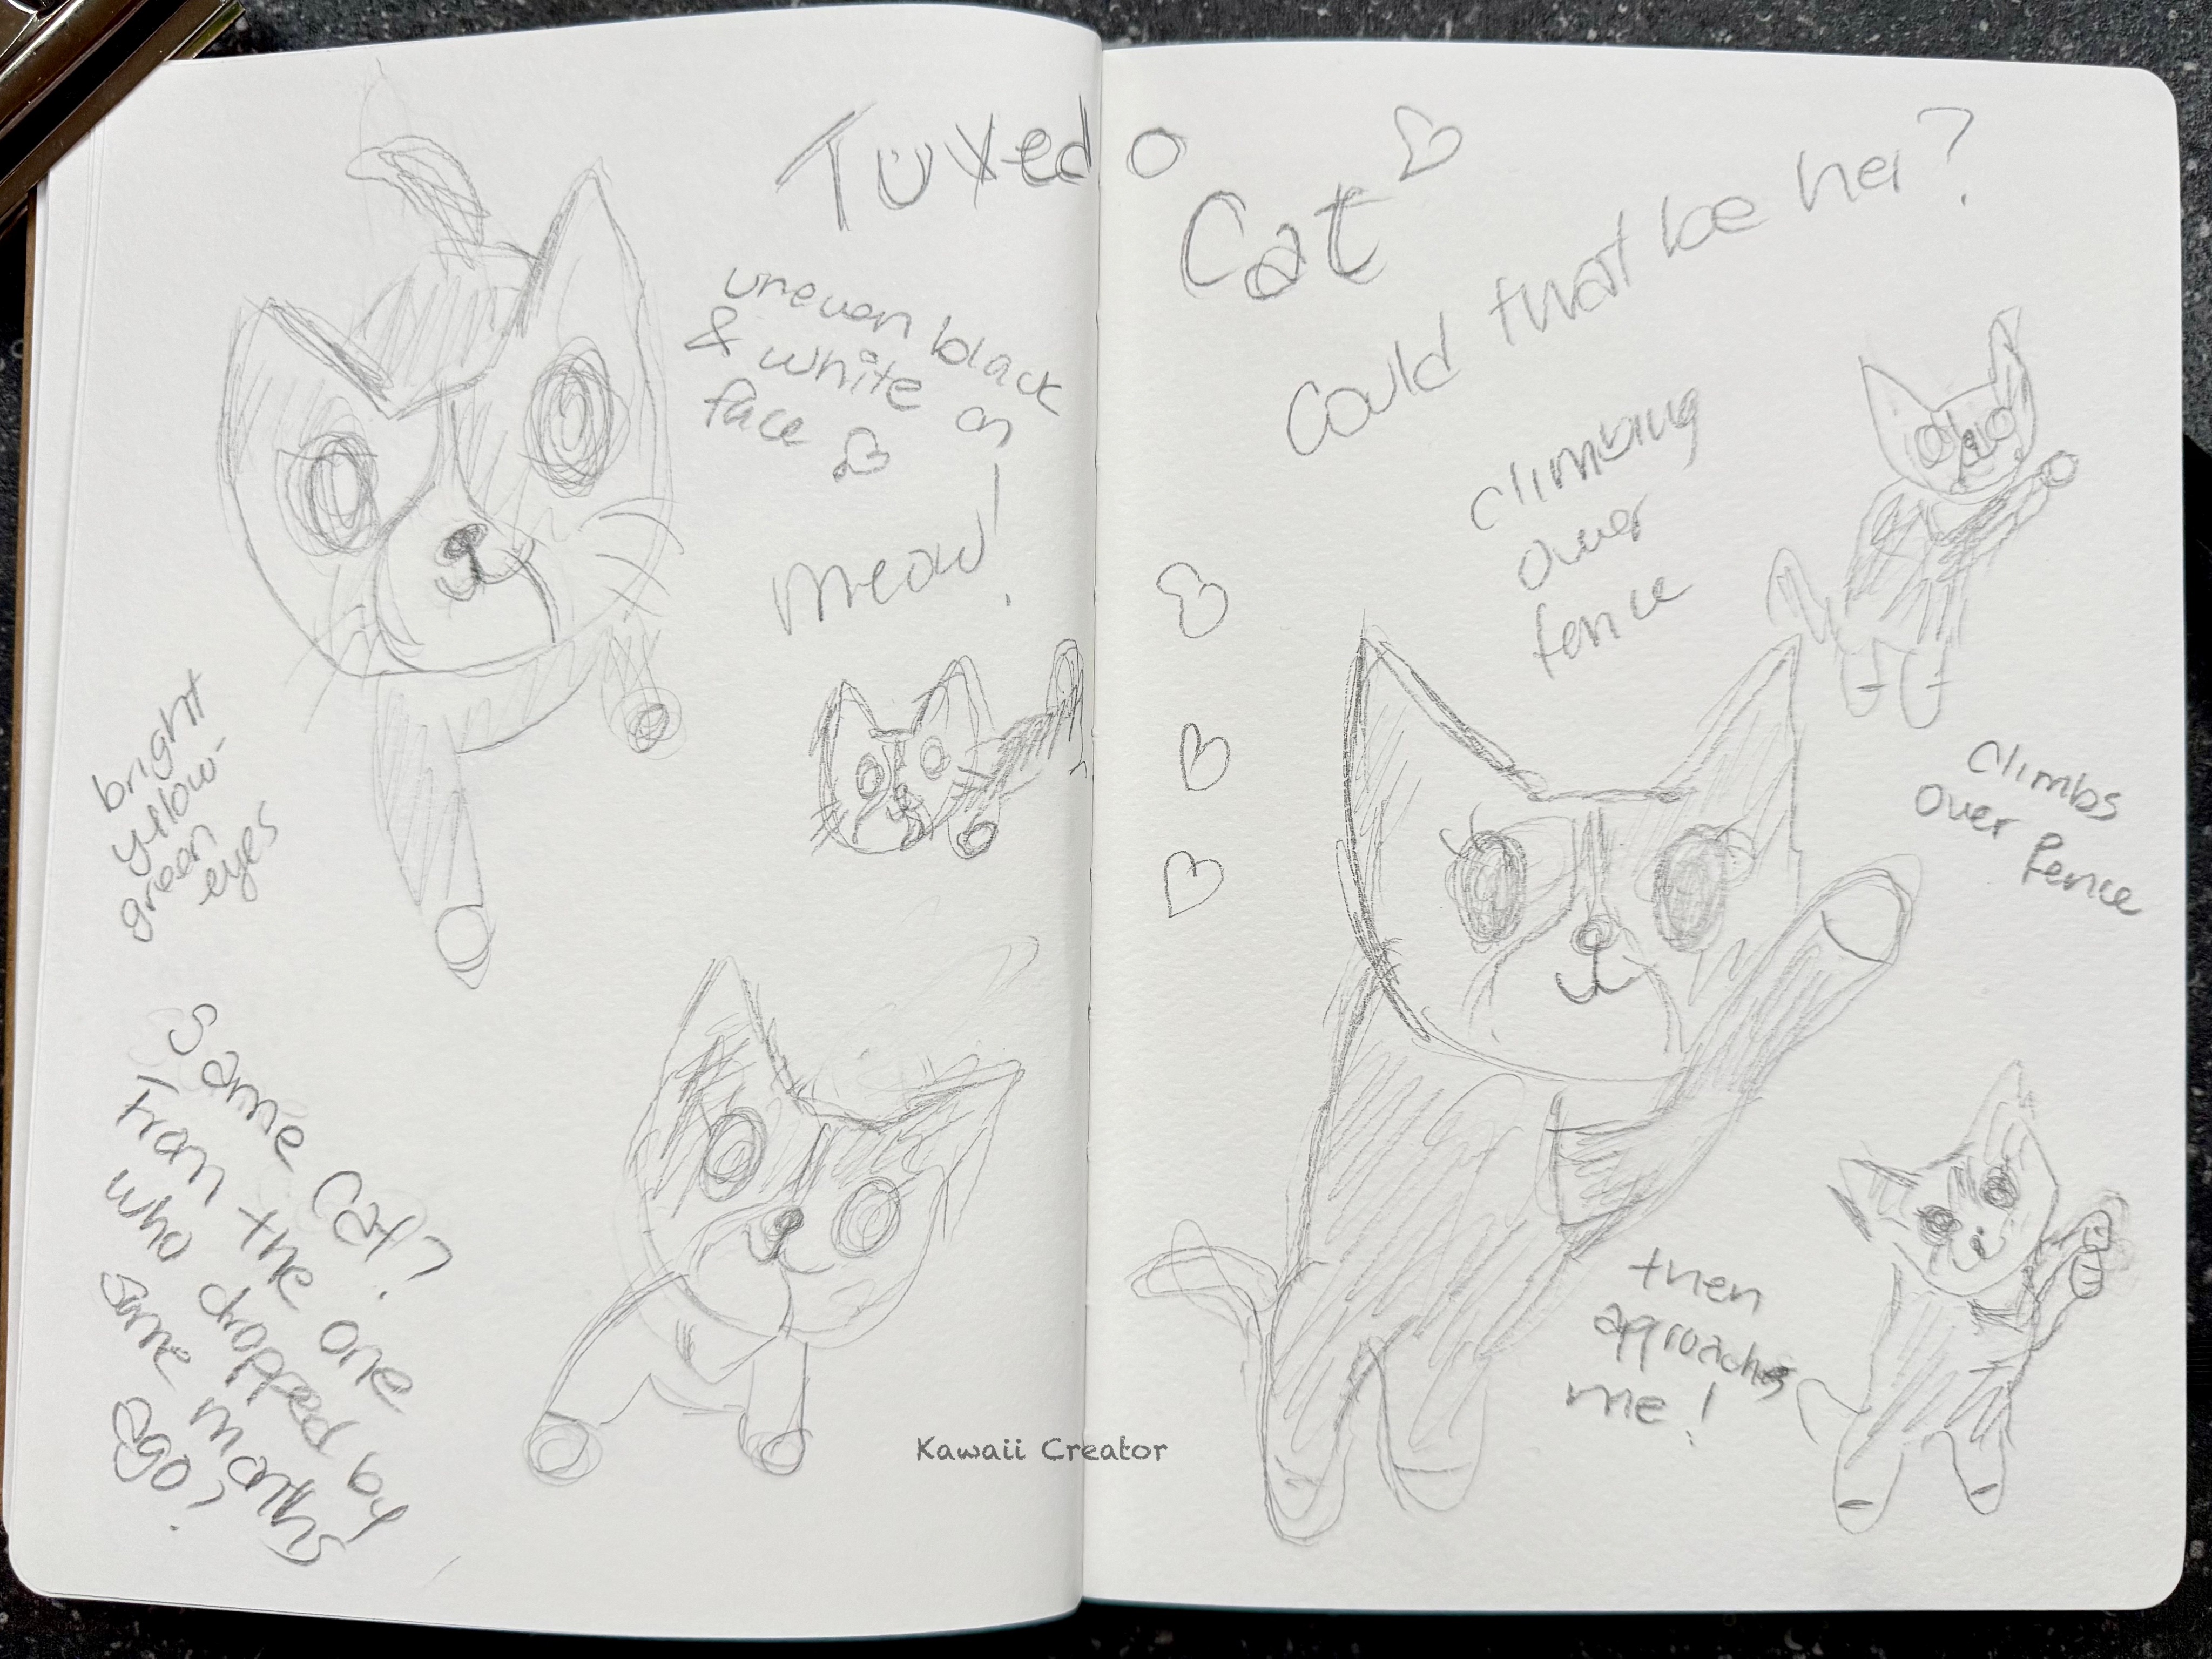 Tuxedo
Cat
Could that be her?
uneven black
& white on
face
meow!
bright
yellow-
green
eyes
Same Cat?
Tran the one
who dropped by
some months
ago?
climbing
over
fence
Climbs
over fence
then
approaches
me!
Kawaii Creator